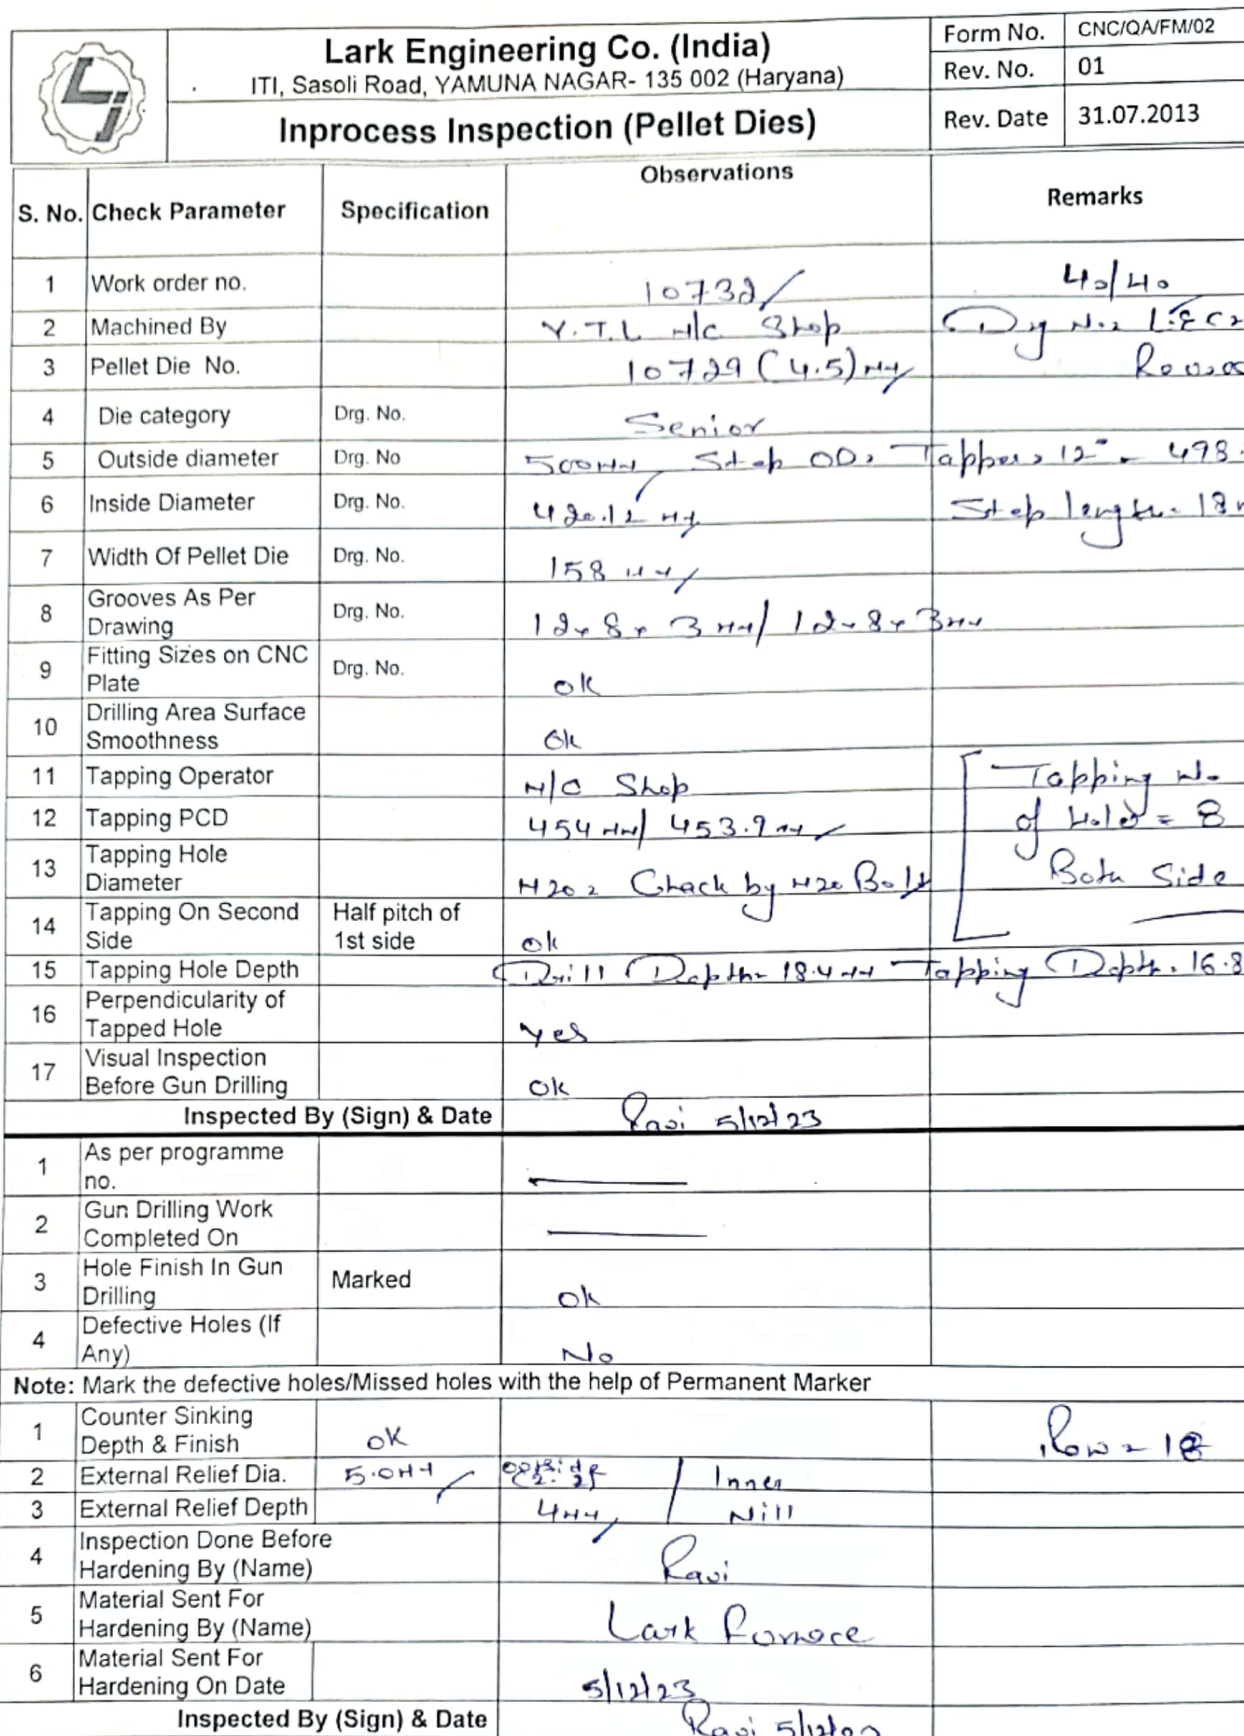 Lark Engineering Co. (India)
ITI, Sasoli Road, YAMUNA NAGAR- 135 002 (Haryana)
Inprocess Inspection (Pellet Dies)
Form No. CNC/QA/FM/02
Rev. No. 01
Rev. Date 31.07.2013
S. No. Check Parameter Specification Observations Remarks
1 Work order no. 10732 40/40
2 Machined By Y.T.L M/C Shop
3 Pellet Die No. 10729 (4.5) MM
4 Die category Drg. No. Senior
5 Outside diameter Drg. No 500MM, Step OD, Tapper, 12° - 498
6 Inside Diameter Drg. No. 420.12 MM Step length. 18
7 Width Of Pellet Die Drg. No. 158 MM
8 Grooves As Per Drawing Drg. No. 12x8x3MM/12x8x3MM
9 Fitting Sizes on CNC Plate Drg. No. Ok
10 Drilling Area Surface Smoothness Ok
11 Tapping Operator M/C Shop Tapping No.
12 Tapping PCD 454MM/453.9MM of Hole = 8
13 Tapping Hole Diameter M20 = Check by M20 Bolt Both Side
14 Tapping On Second Side Half pitch of 1st side Ok
15 Tapping Hole Depth Drill Depth- 18.4MM Tapping Depth. 16.8
16 Perpendicularity of Tapped Hole Yes
17 Visual Inspection Before Gun Drilling Ok
Inspected By (Sign) & Date Ravi 5/12/23
1 As per programme no.
2 Gun Drilling Work Completed On
3 Hole Finish In Gun Drilling Marked Ok
4 Defective Holes (If Any) No
Note: Mark the defective holes/Missed holes with the help of Permanent Marker
1 Counter Sinking Depth & Finish OK Row = 18
2 External Relief Dia. 5.0MM / Inner
3 External Relief Depth 4MM / Nill
4 Inspection Done Before Hardening By (Name) Ravi
5 Material Sent For Hardening By (Name) Lark Fornace
6 Material Sent For Hardening On Date 5/12/23
Inspected By (Sign) & Date Ravi